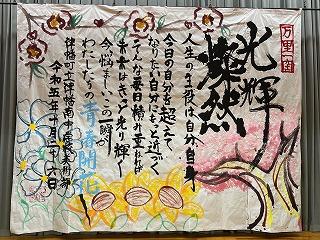 光輝
燦然
人生の主役は自分自身
今日の自分を超えて
なりたい自分にもっと近づく
そんな毎日積み重ねれば
未来はきっと光り輝く
今悩ましこの一瞬が
わたしたちの青春開花
津幡町立津幡南中学校美術部
令和五年十月二十六日